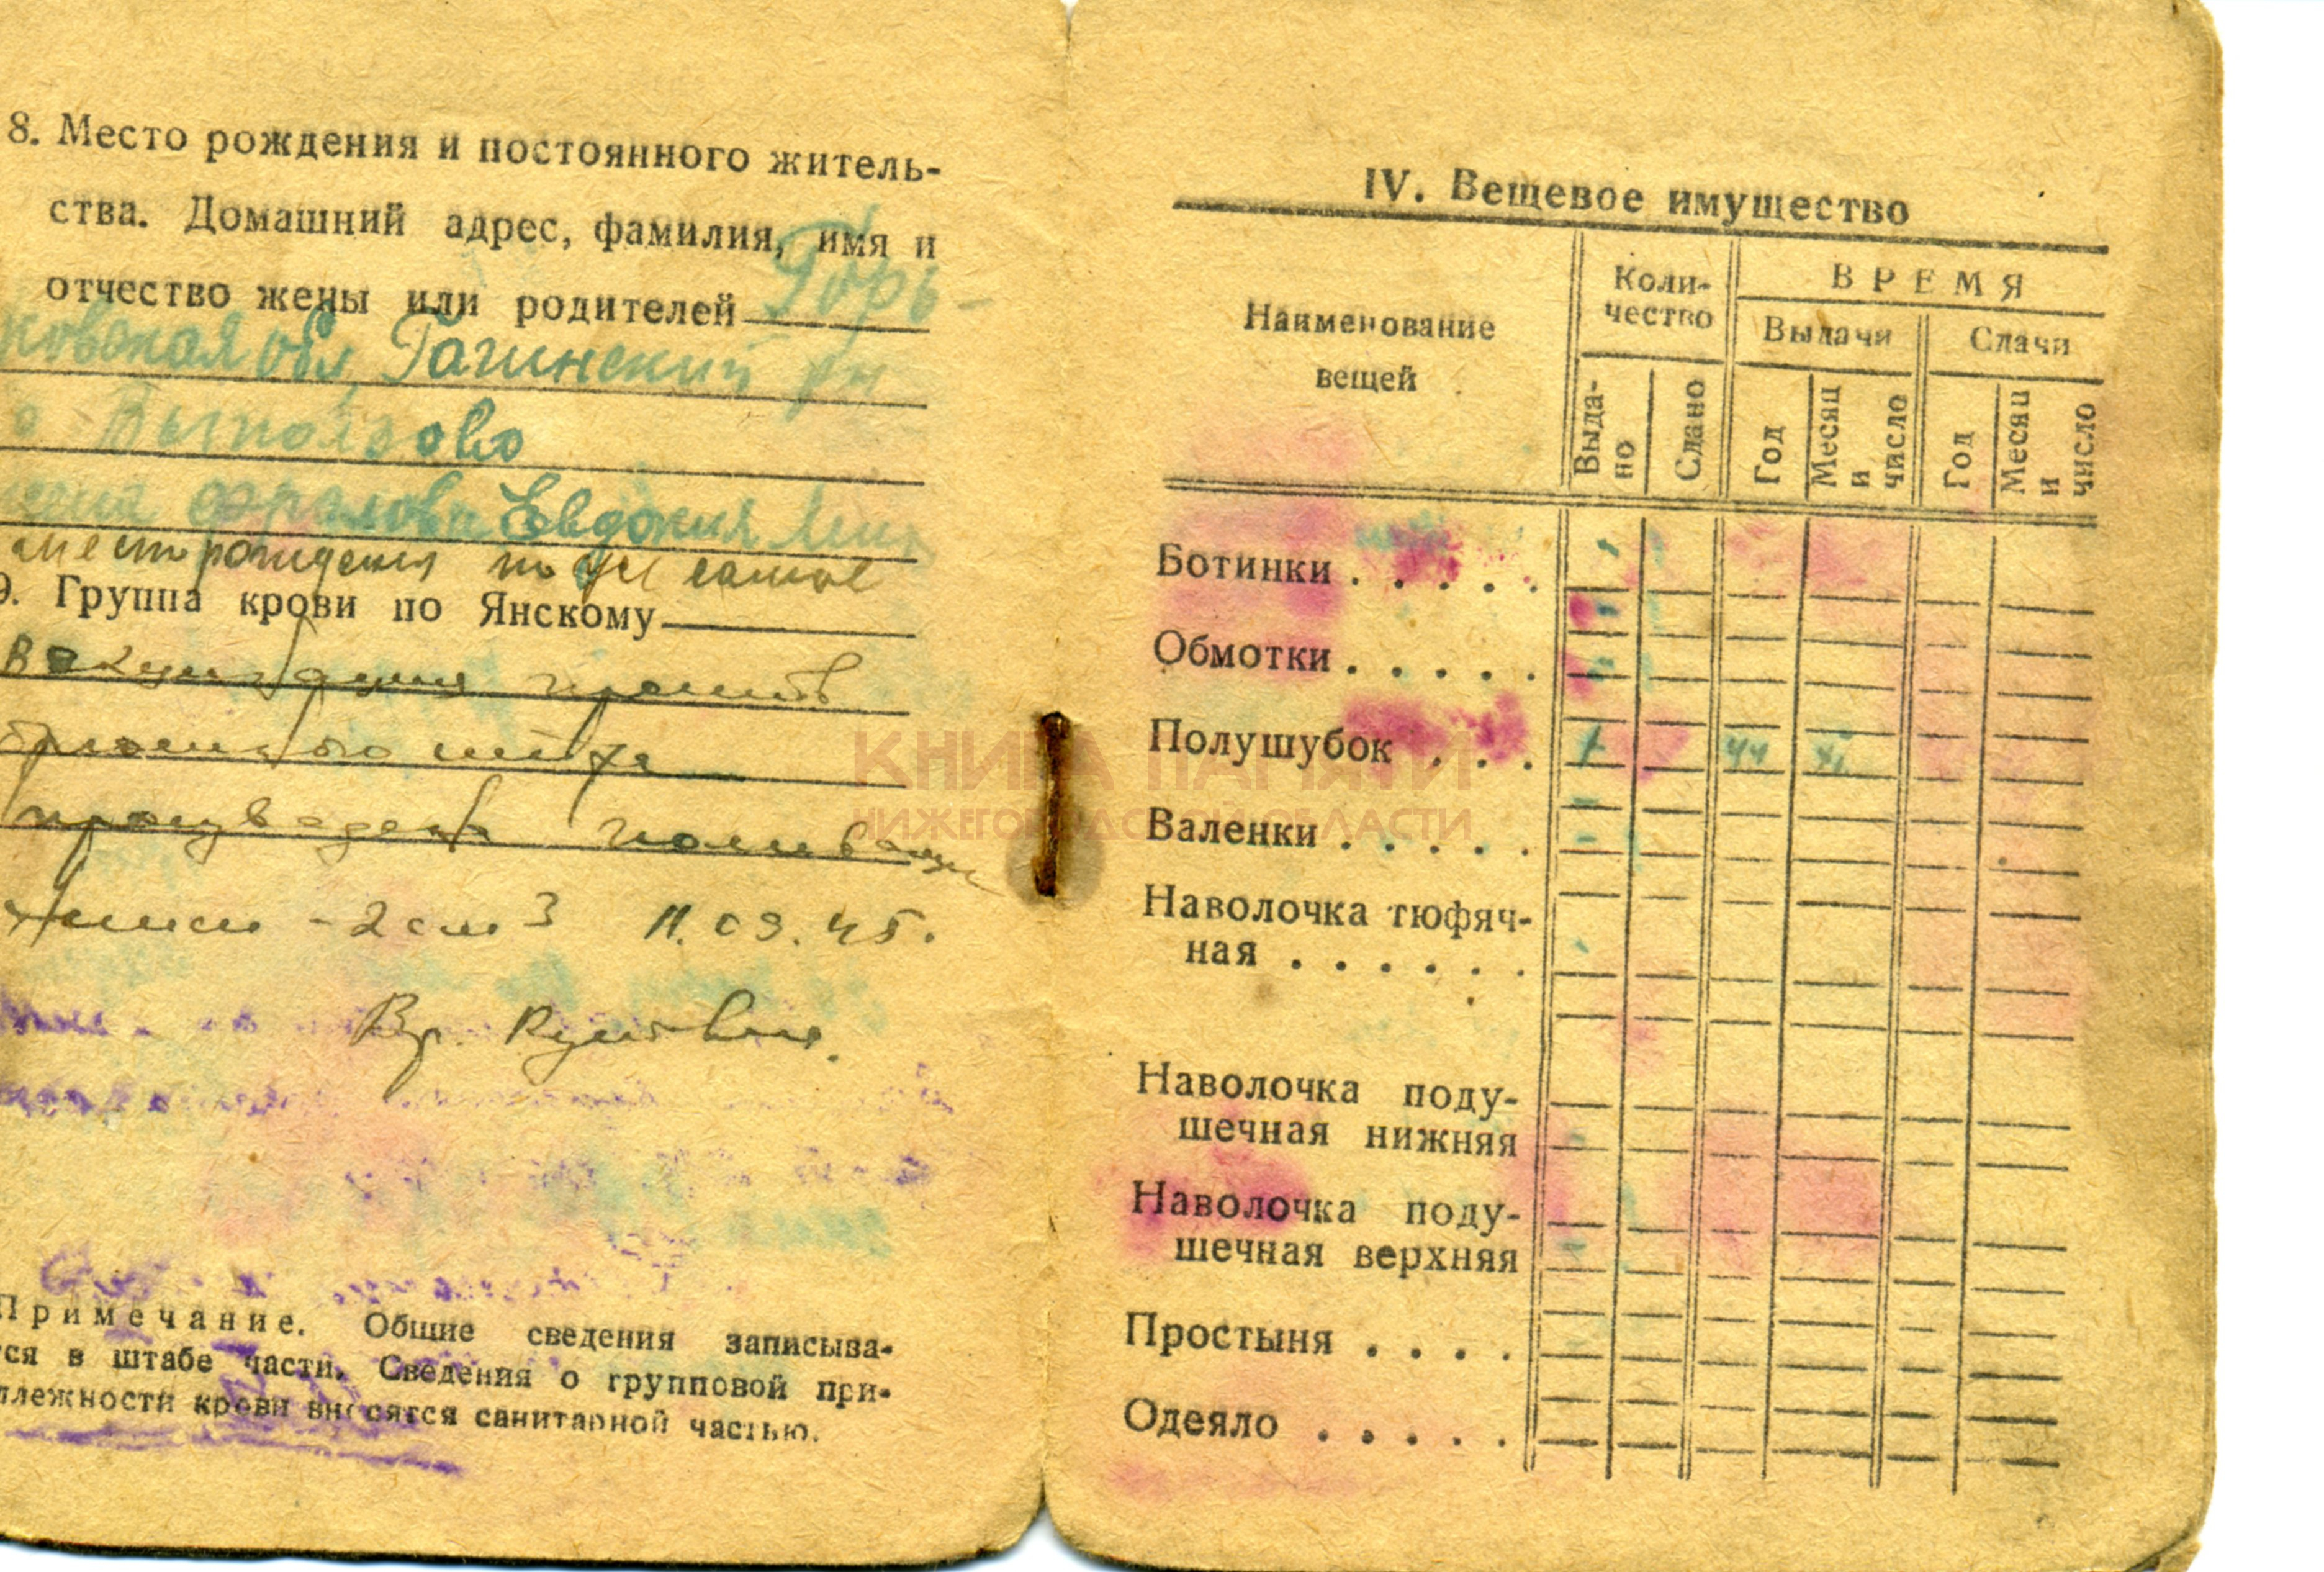 8. Место рождения и постоянного житель-
ства. Домашний адрес, фамилия, имя и
отчество жены или родителей Горь-
ковская обл, Гагинский рн
Выползово
Евдокия
место рождения
9. Группа крови по Янскому
вакцинация против
брюшного тифа
произведена
-2 см3 11.09.45.
Вр.
Примечание. Общие сведения записыва-
тся в штабе части. Сведения о групповой при-
длежности крови вносятся санитарной частью.
IV. Вещевое имущество
Наименование
вещей
Коли-
чество
ВРЕМЯ
Выдачи
Сдачи
Выда-
но
Сдано
Год
Месяц
и
число
Год
Месяц
и
число
Ботинки . . . . .
Обмотки . . . . .
Полушубок . . . 1 44
Валенки . . . . .
Наволочка тюфяч-
ная . . . . . .
Наволочка поду-
шечная нижняя
Наволочка поду-
шечная верхняя
Простыня . . . .
Одеяло . . . . .
КНИГА ПАМЯТИ
НИЖЕГОРОДСКОЙ ОБЛАСТИ